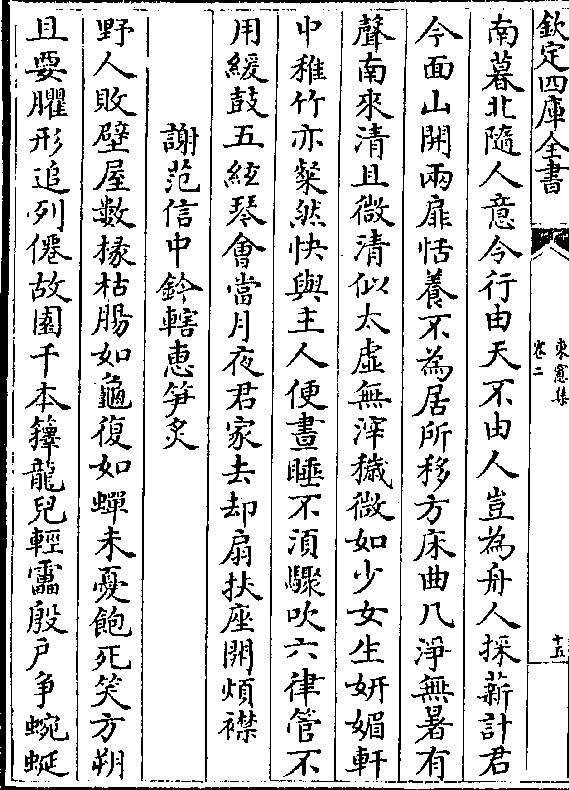 欽定四庫全書
東窗集
卷二
十五
南暮北隨人意令行由天不由人豈為舟人採薪計君
今面山開兩扉恬養不為居所移方床曲几淨無暑有
聲南來清且微清似太虛無滓穢微如少女生妍媚軒
中稚竹亦粲然快與主人便晝睡不須驟吹六律管不
用緩鼓五絃琴會當月夜君家去却扇扶座開煩襟
謝范信中鈐轄惠笋炙
野人敗壁屋數椽枯腸如龜復如蟬未憂飽死笑方朔
且要臞形追列僊故園千本籜龍兒輕靁殷戶爭蜿蜒